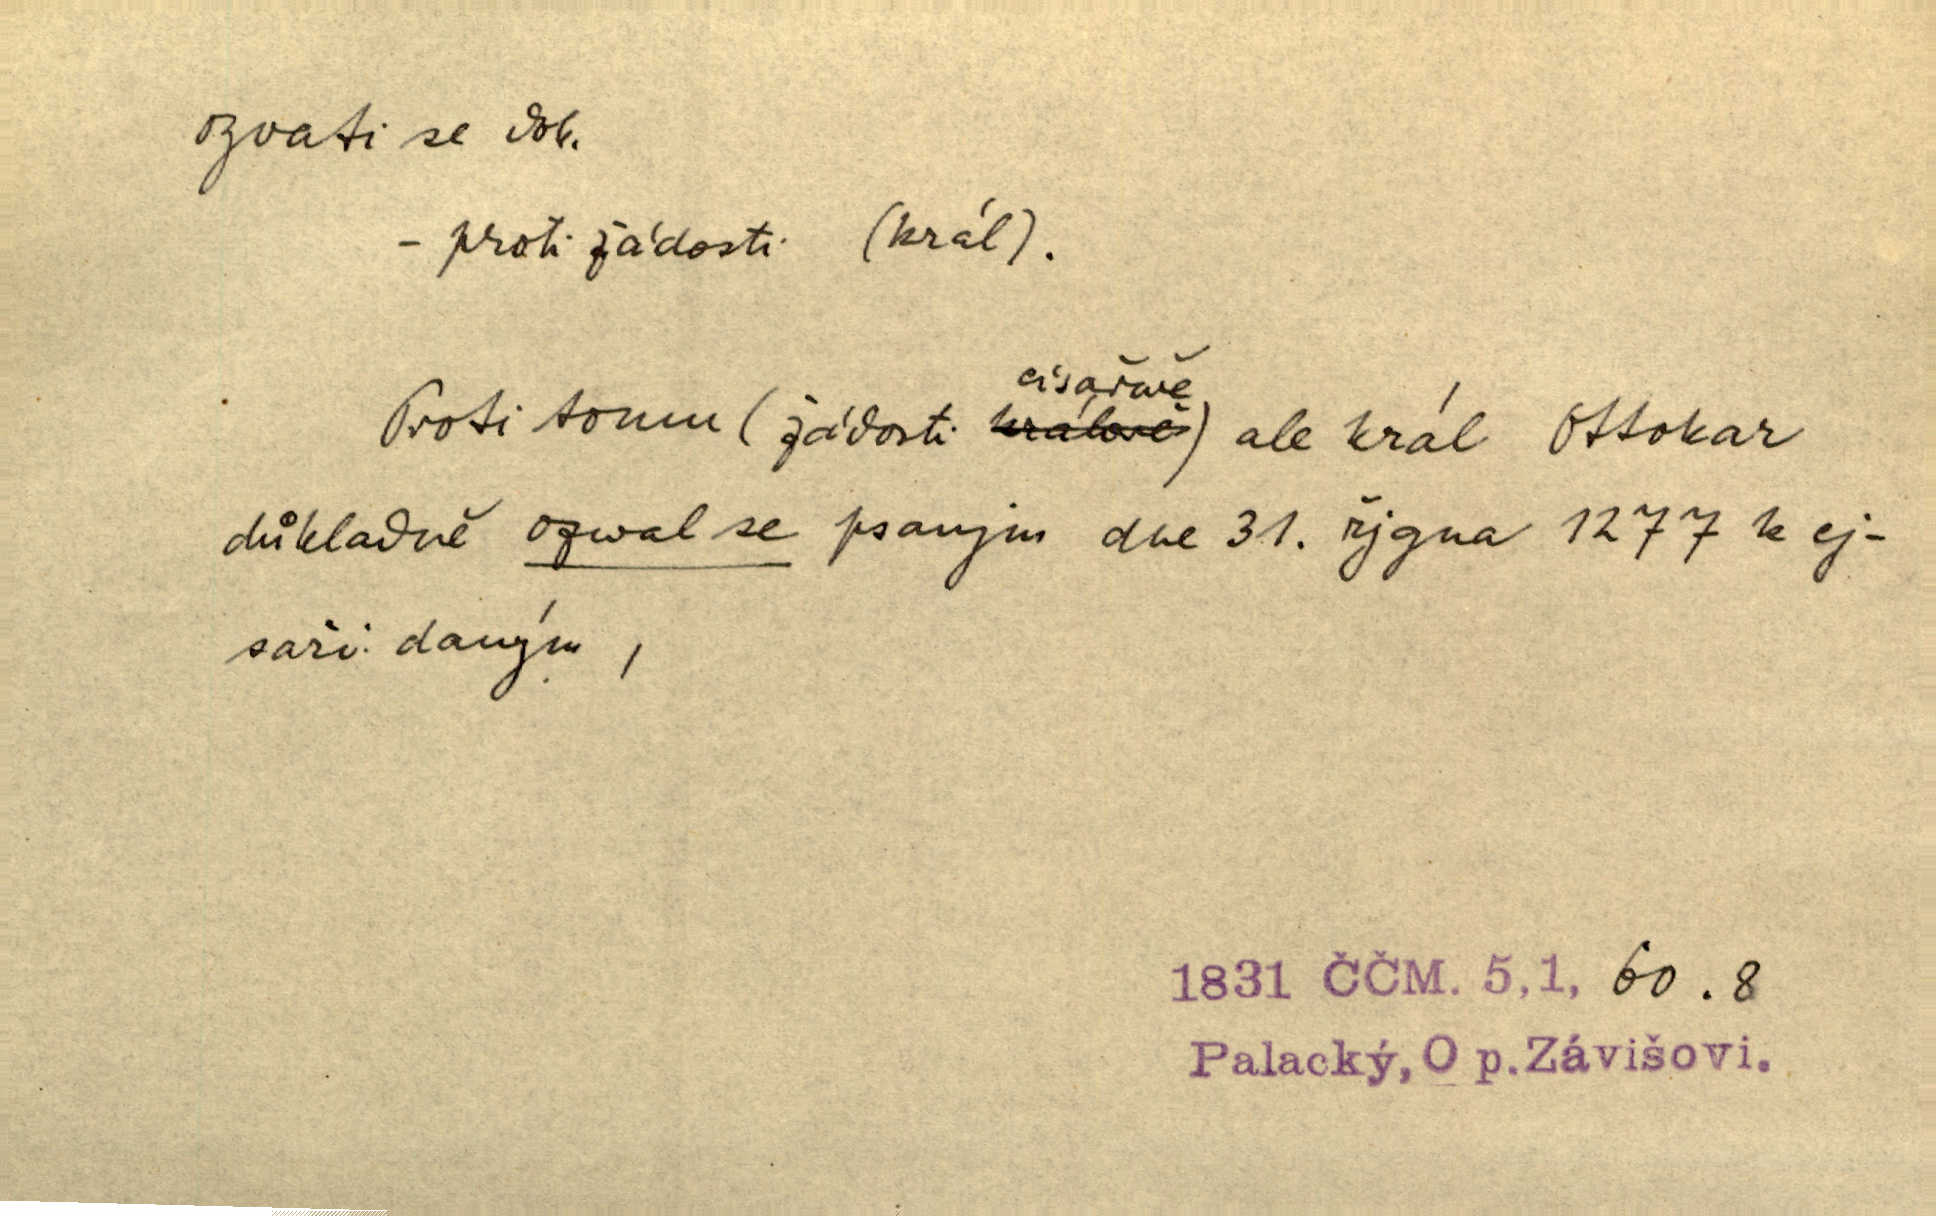 ozvati se dok.
- proti žádosti (král).
císařově
Proti tomu (žádosti králově) ale král Ottokar
důkladně ozwal se psanjm dne 31. řjgna 1277 k cj-
saři daným,
1831 ČČM. 5,1, 60.8
Palacký, O p. Závišovi.